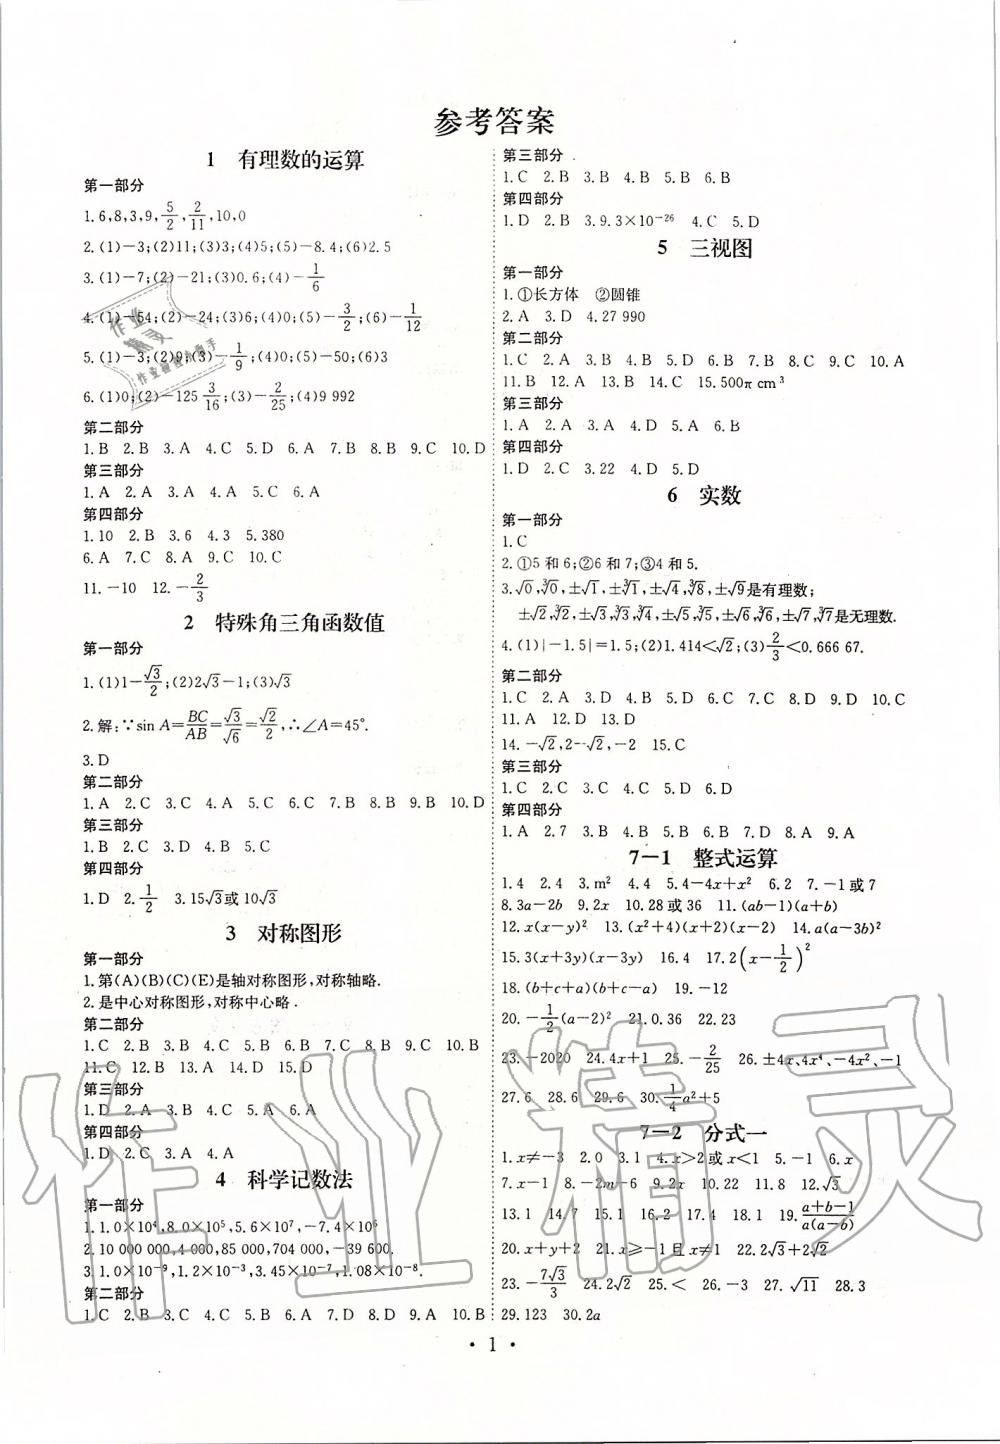 参考答案
1 有理数的运算
第一部分
1.6,8,3,9,5/2,2/11,10,0
2.(1)-3;(2)11;(3)3;(4)5;(5)-8.4;(6)2.5
3.(1)-7;(2)-21;(3)0.6;(4)-1/6
4.(1)-64;(2)-24;(3)6;(4)0;(5)-3/2;(6)-1/12
5.(1)-3;(2)9;(3)-1/9;(4)0;(5)-50;(6)3
6.(1)0;(2)-125 3/16;(3)-2/25;(4)9 992
第二部分
1.B 2.B 3.A 4.C 5.D 6.A 7.B 8.B 9.C 10.D
第三部分
1.A 2.A 3.A 4.A 5.C 6.A
第四部分
1.10 2.B 3.6 4.3 5.380
6.A 7.C 8.A 9.C 10.C
11.-10 12.-2/3
2 特殊角三角函数值
第一部分
1.(1)1-√3/2;(2)2√3-1;(3)√3
2.解:∵sin A=BC/AB=√3/√6=√2/2,∴∠A=45°.
3.D
第二部分
1.A 2.C 3.C 4.A 5.C 6.C 7.B 8.B 9.B 10.D
第三部分
1.B 2.C 3.D 4.B 5.C 6.C
第四部分
1.D 2.1/2 3.15√3或10√3
3 对称图形
第一部分
1.第(A)(B)(C)(E)是轴对称图形,对称轴略.
2.是中心对称图形,对称中心略.
第二部分
1.C 2.B 3.B 4.C 5.B 6.C 7.C 8.B 9.C 10.B
11.C 12.B 13.A 14.D 15.D
第三部分
1.D 2.A 3.B 4.C 5.A 6.A
第四部分
1.D 2.C 3.A 4.A
4 科学记数法
第一部分
1.1.0×10⁴,8.0×10⁵,5.6×10⁷,-7.4×10⁶
2.10 000 000,4 000,85 000,704 000,-39 600.
3.1.0×10⁻⁹,1.2×10⁻³,3.45×10⁻⁷,1.08×10⁻⁸.
第二部分
1.C 2.B 3.C 4.C 5.B 6.C 7.B 8.D 9.A 10.B
第三部分
1.C 2.B 3.B 4.B 5.B 6.B
第四部分
1.D 2.B 3.9.3×10⁻²⁶ 4.C 5.D
5 三视图
第一部分
1.①长方体 ②圆锥
2.A 3.D 4.27 990
第二部分
1.C 2.A 3.B 4.B 5.B 6.B 7.B 8.C 9.C 10.A
11.B 12.A 13.B 14.C 15.500π cm³
第三部分
1.A 2.A 3.A 4.D 5.A 6.B
第四部分
1.D 2.C 3.22 4.D 5.D
6 实数
第一部分
1.C
2.①5 和 6;②6 和 7;③4 和 5.
3.√0,∛0,±√1,±∛1,±√4,∛8,±√9是有理数;
±√2,∛2,±√3,∛3,∛4,±√5,∛5,±√6,∛6,±√7,∛7是无理数.
4.(1)|-1.5|=1.5;(2)1.414<√2;(3)2/3<0.666 67.
第二部分
1.C 2.A 3.D 4.B 5.B 6.C 7.C 8.D 9.D 10.C
11.A 12.D 13.D
14.-√2,2-√2,-2 15.C
第三部分
1.C 2.C 3.C 4.C 5.D 6.D
第四部分
1.A 2.7 3.B 4.B 5.B 6.B 7.D 8.A 9.A
7-1 整式运算
1.4 2.4 3.m² 4.4 5.4-4x+x² 6.2 7.-1 或 7
8.3a-2b 9.2x 10.28 或 36 11.(ab-1)(a+b)
12.x(x-y)² 13.(x²+4)(x+2)(x-2) 14.a(a-3b)²
15.3(x+3y)(x-3y) 16.4 17.2(x-1/2)²
18.(b+c+a)(b+c-a) 19.-12
20.-1/2(a-2)² 21.0.36 22.23
23.-2020 24.4x+1 25.-2/25 26.±4x、4x⁴、-4x²、-1
27.6 28.6 29.6 30.1/4a²+5
7-2 分式一
1.x≠-3 2.0 3.1 4.x>2 或 x<1 5.-1 6.x
7.x-1 8.-2m-6 9.2x 10.2 11.8 12.√3
13.1 14.7 15.1 16.2 17.4 18.1 19.a+b-1/a(a-b)
20.x+y+2 21.x≥-1 且 x≠1 22.2√3+2√2
23.-7√3/3 24.2√2 25.< 26.-3 27.√11 28.3
29.123 30.2a
· 1 ·
作业精灵
作业
精灵